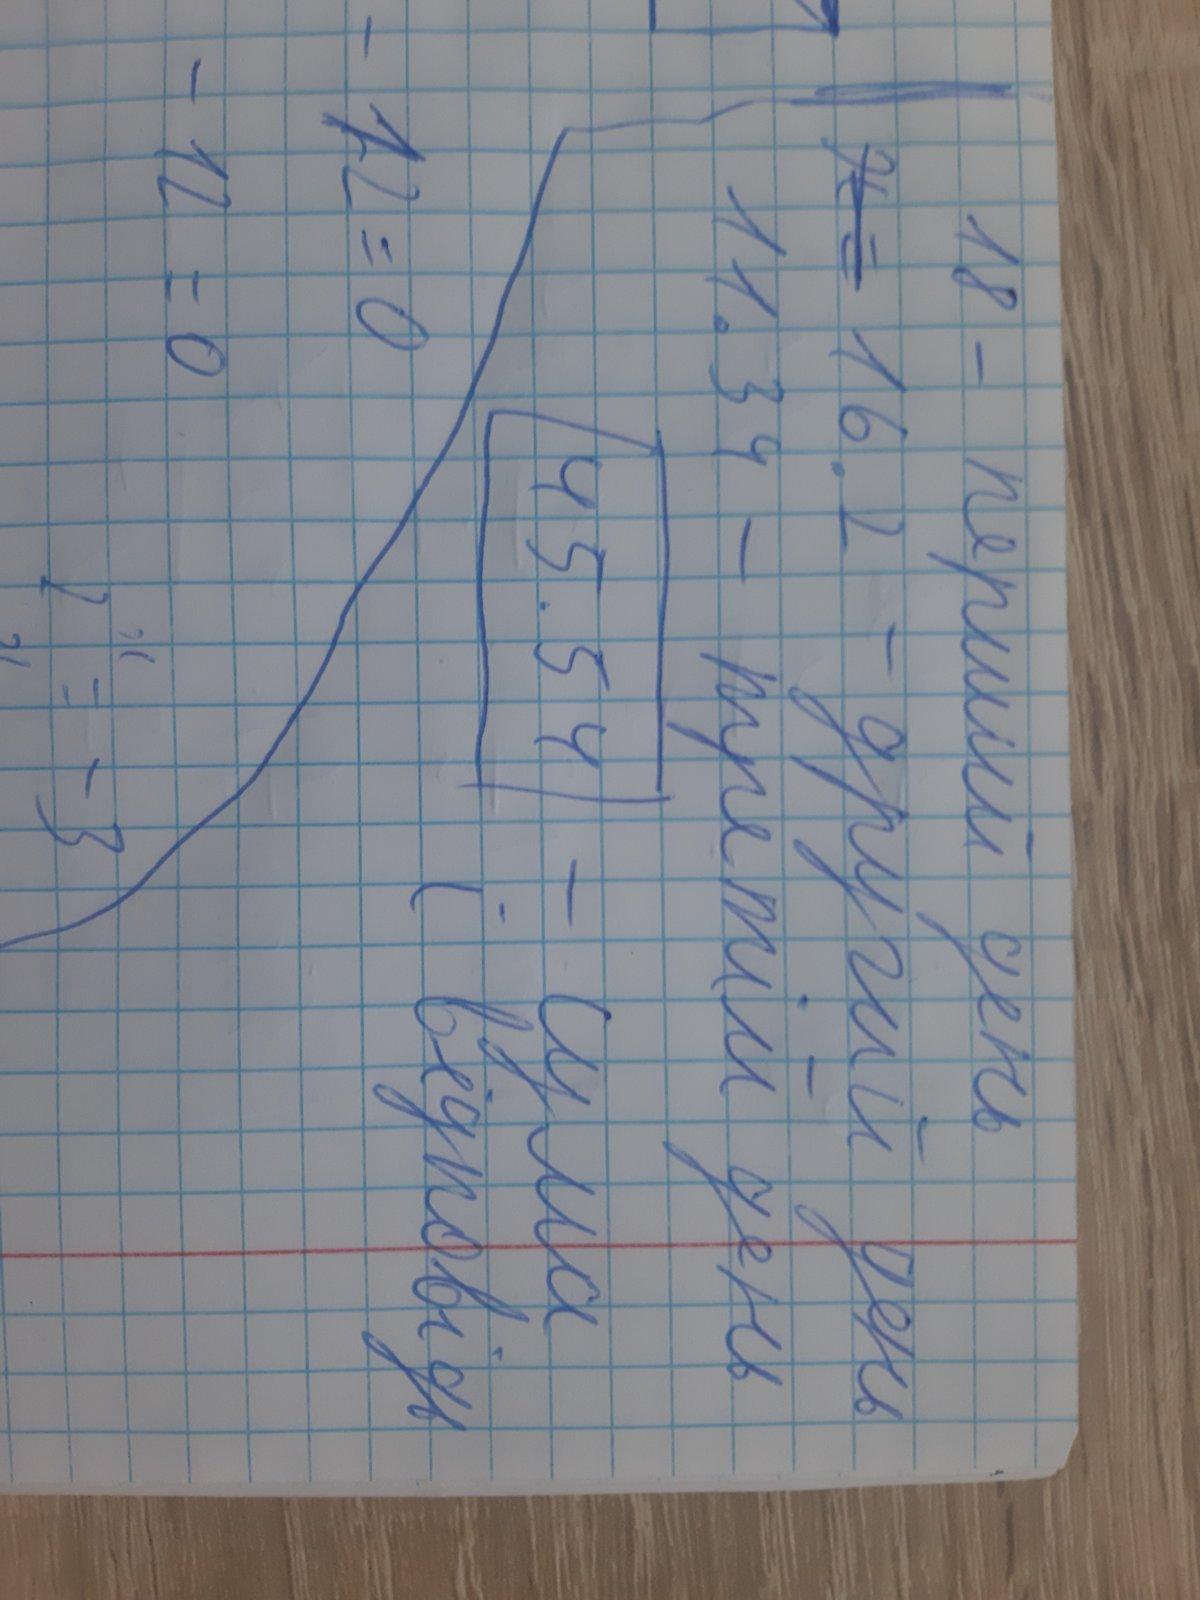 18 - перший день
16.2 - другий день
11.34 - третій день
45.54 - сума
і відповідь
- 12 = 0
- 12 = 0
= -3